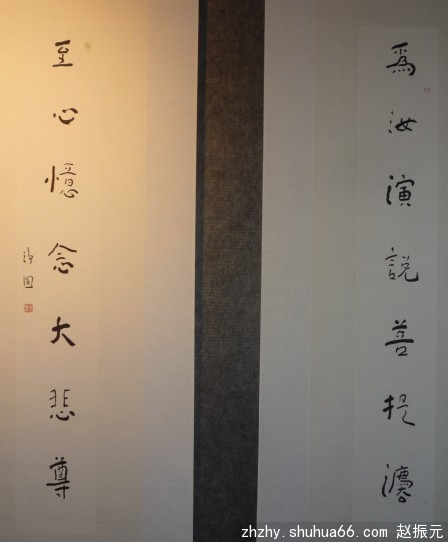 爲汝演說菩提灋
至心憶念大悲尊
zhzhy.shuhua66.com 赵振元